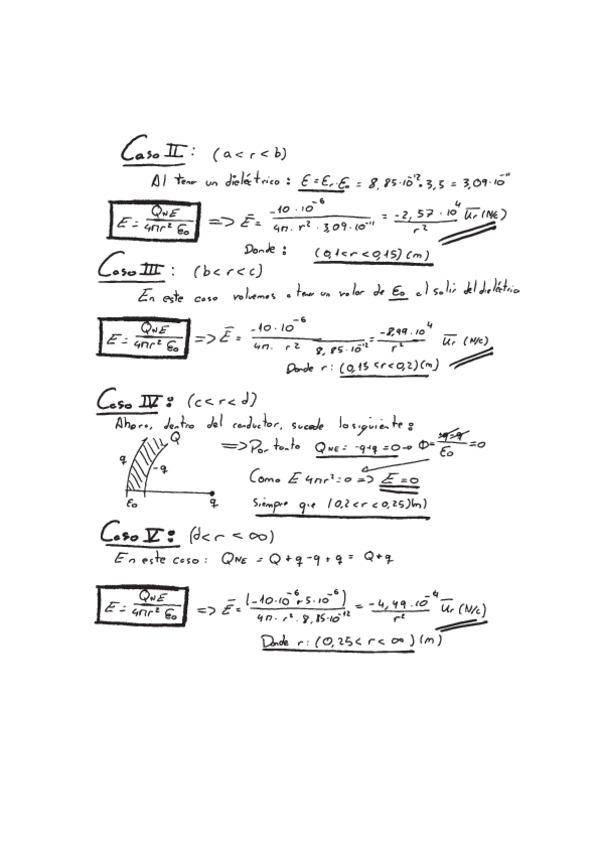 Caso II: (a < r < b)
Al tener un dieléctrico: Ɛ = Ɛr·Ɛo = 8,85·10^-12·3,5 = 3,09·10^-11
E = QNE / 4πr² Ɛo => Ē = -10·10^-6 / 4π·r²·3,09·10^-11 = -2,57·10^4 / r² Ur (N/C)
Donde: (0,1 < r < 0,15) (m)
Caso III: (b < r < c)
En este caso volvemos a tener un valor de Ɛo al salir del dieléctrico
E = QNE / 4πr² Ɛo => Ē = -10·10^-6 / 4π·r² 8,85·10^-12 = -8,99·10^4 / r² Ur (N/C)
Donde r: (0,15 < r < 0,2) (m)
Caso IV: (c < r < d)
Ahora, dentro del conductor, sucede lo siguiente:
Q
q
-q
Ɛo
q
=> Por tanto QNE = -q+q = 0 → Φ = -q+q / Ɛo = 0
Como E 4πr² = 0 => E = 0
siempre que (0,2 < r < 0,25) (m)
Caso V: (d < r < ∞)
En este caso: QNE = Q + q - q + q = Q + q
E = QNE / 4πr² Ɛo => Ē = (-10·10^-6 + 5·10^-6) / 4π·r²·8,85·10^-12 = -4,49·10^4 / r² Ur (N/C)
Donde r: (0,25 < r < ∞) (m)